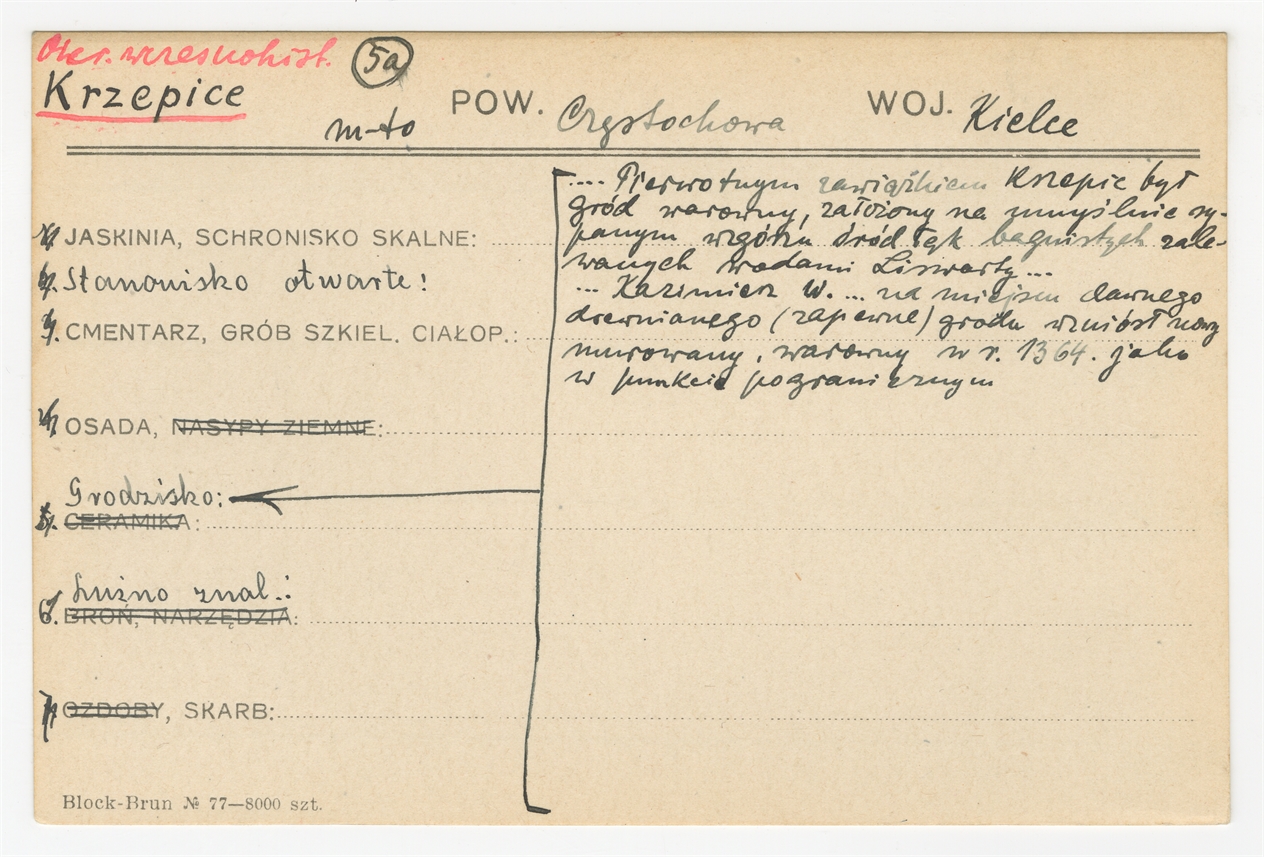 Okr. wczesnohist. 5a
Krzepice
m-to POW. Częstochowa WOJ. Kielce
.... Pierwotnym zawiązkiem Krzepic był
gród warowny, założony na umyślnie sy-
panym wzgórzu śród łąk bagnistych zale-
wanych wodami Liswarty...
... Kazimierz W. ... na miejscu dawnego
drewnianego (zapewne) grodu wzniósł nowy
murowany, warowny w r. 1364. jako
w punkcie pogranicznym
1. JASKINIA, SCHRONISKO SKALNE:
2. Stanowisko otwarte:
3. CMENTARZ, GRÓB SZKIEL. CIAŁOP.:
4. OSADA, NASYPY ZIEMNE:
Grodzisko:
5. CERAMIKA:
Luźno znal.:
6. BROŃ, NARZĘDZIA:
7. OZDOBY, SKARB:
Block-Brun № 77—8000 szt.